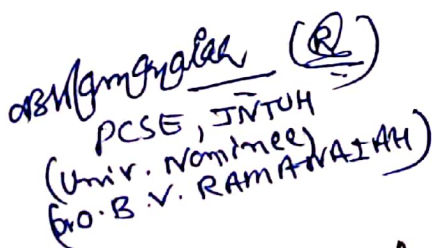 (R)
PCSE, JNTUH
(Univ. Nominee)
(Pro. B. V. RAMANAIAH)